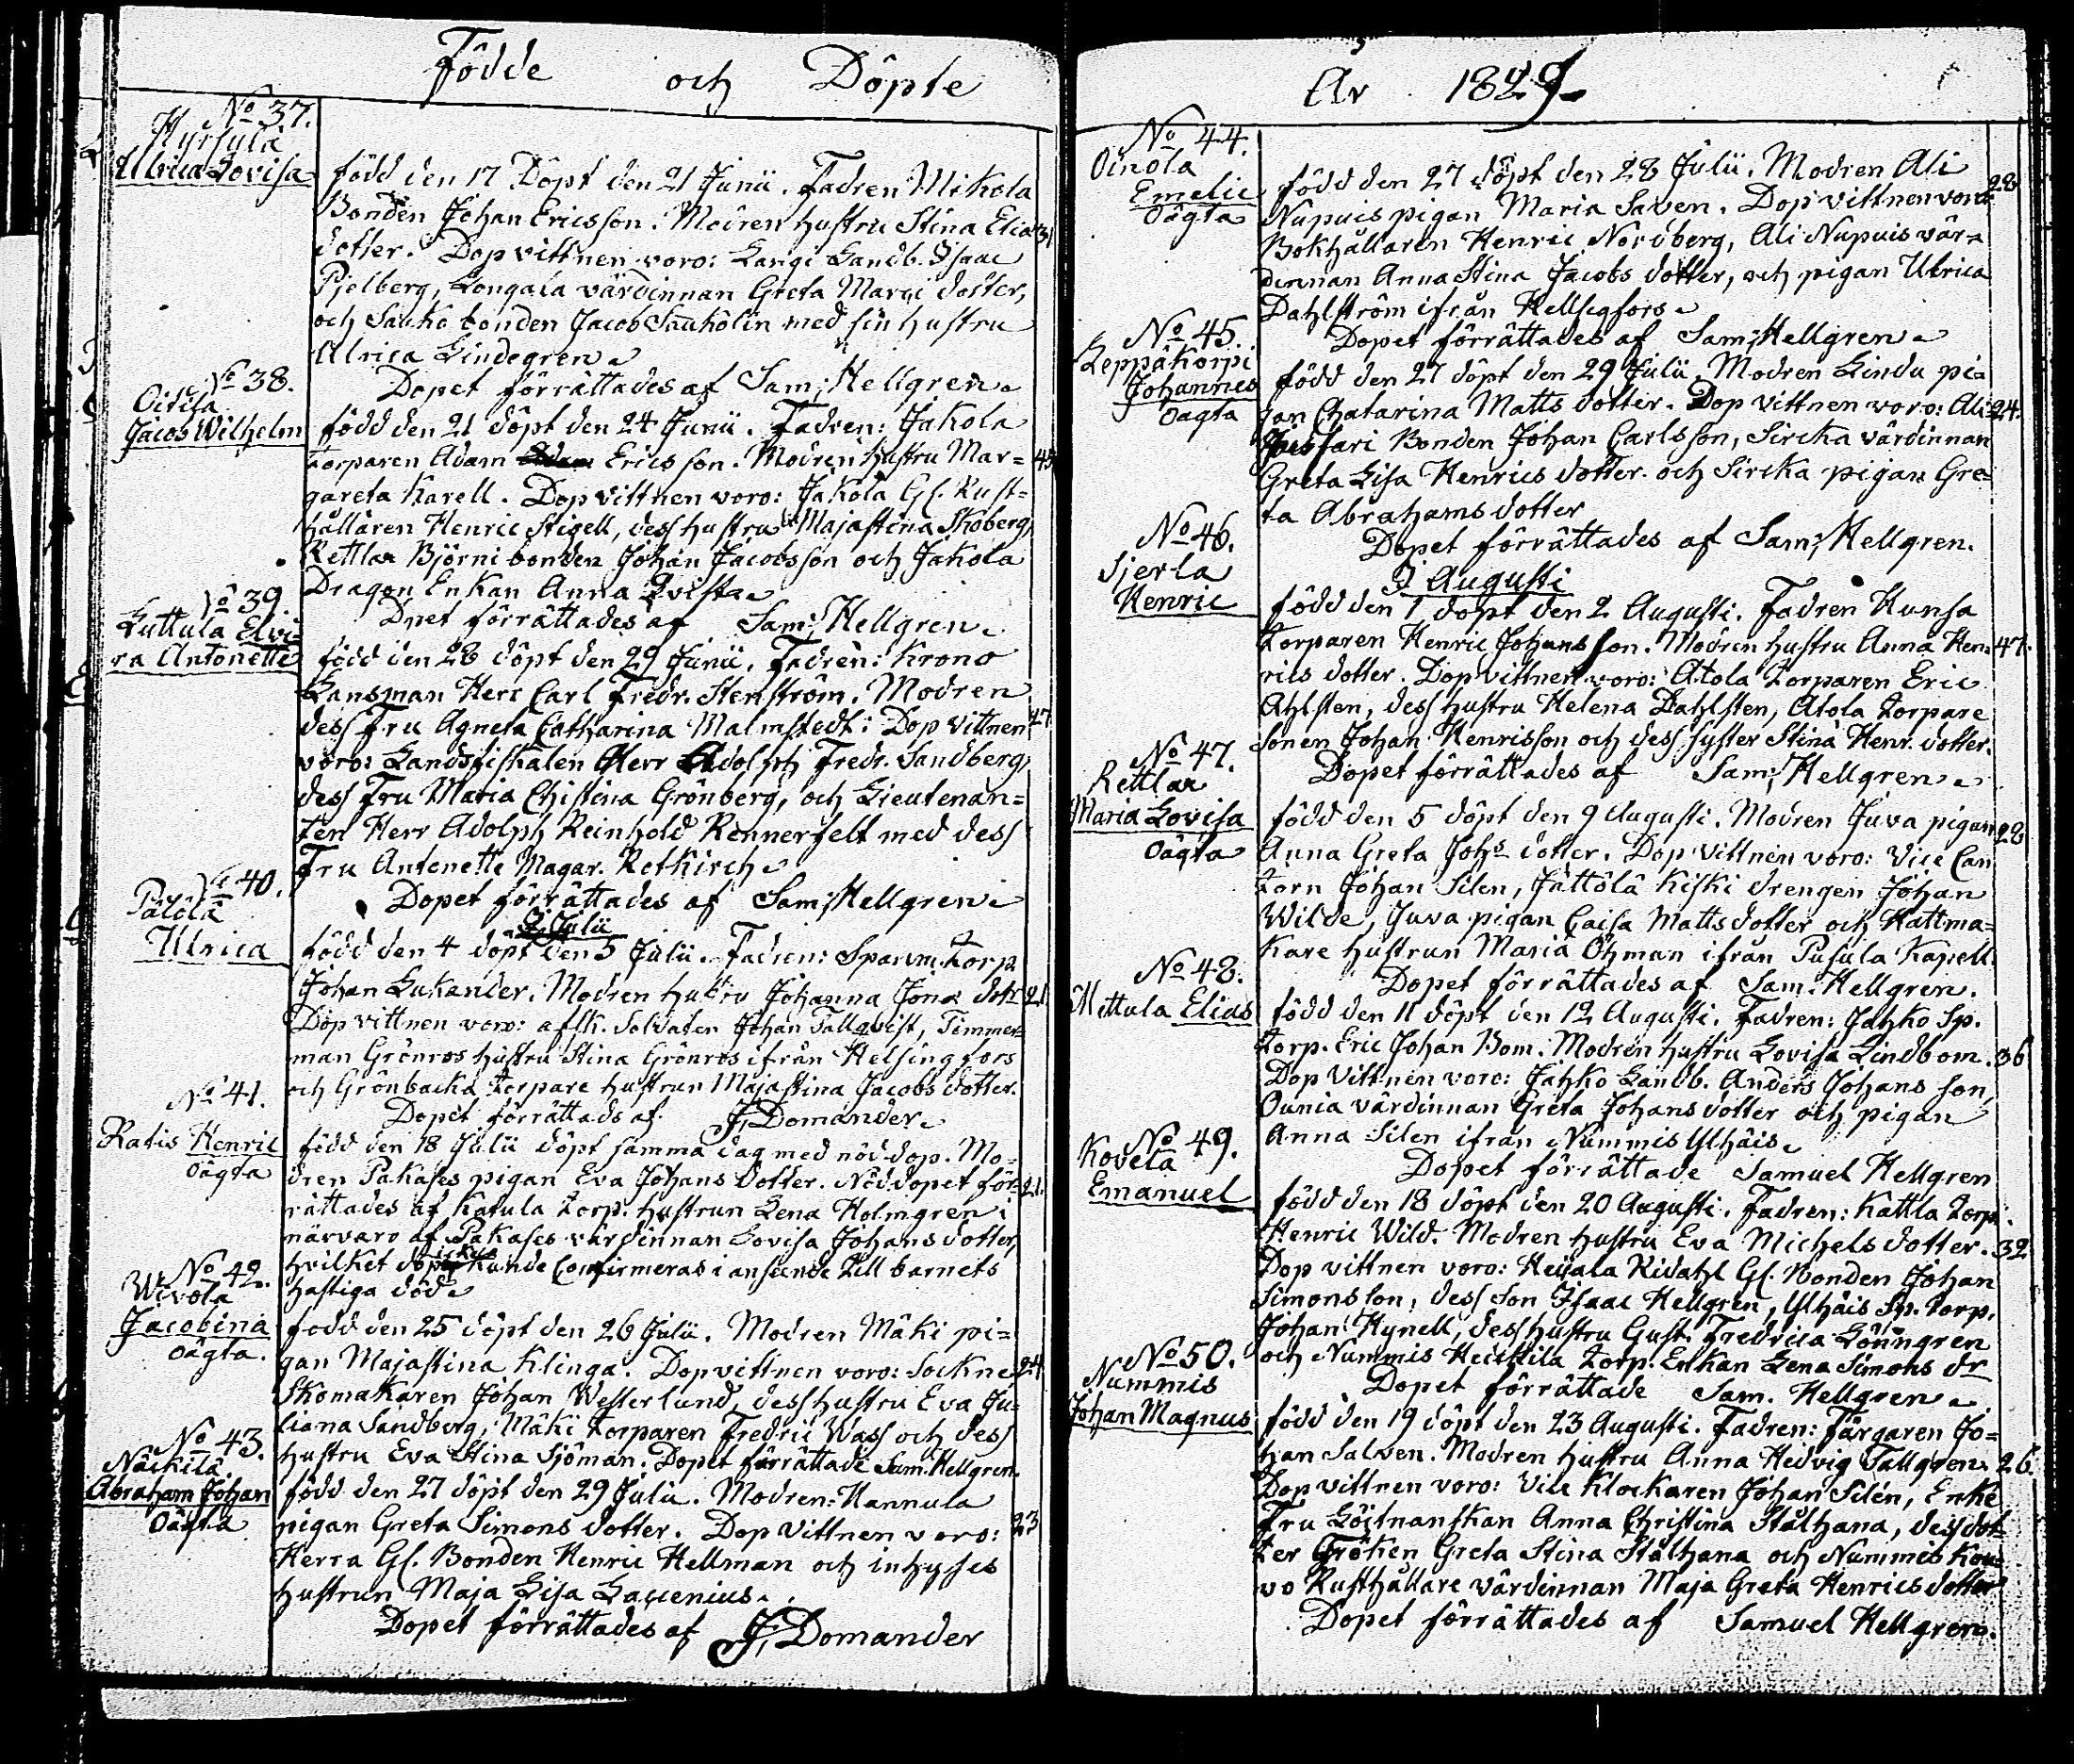 Födde och Döpte
No 37.
Hyrsula
Ulrica Lovisa
född den 17 Döpt den 21 Junii. Fadren Mikola
Bonden Johan Ericsson. Modren hustru Stina Elias 31
dotter. Dop vittnen voro: Langi Landb. Isaac
Pjelberg, Longala värdinnan Greta Marci dotter,
och Sauko bonden Jacob Saukolin med sin hustru
Ulrica Lindegren
Dopet förrättades af Sam; Hellgren
No 38.
Oitila
Jacob Wilhelm
född den 21 döpt den 24 Junii. Fadren: Jakola
torparen Adam Ericsson. Modren hustru Mar= 45
gareta Karell. Dop vittnen voro: Jakola Gl. Rust=
hållaren Henric Stigell, dess hustru Majastina Skoberg,
Rettlax Björni bonden Johan Jacobsson och Jakola
Dragon Enkan Anna Qvist
Dpet förrättades af Sam; Hellgren.
No 39.
Luttula Elvi=
ra Antonette
född den 28 döpt den 29 Junii. Fadren: Krono
Länsman Herr Carl Fredr. Stenström. Modren
dess Fru Agneta Catharina Malmstedt: Dop vittnen 47
voro: Landsfiskalen Herr Adolph Fredr. Sandberg,
dess Fru Maria Christina Grönberg, och Lieutenan=
ten Herr Adolph Reinhold Rennerfelt med dess
Fru Antonette Magar. Retkirch
Dopet förrättades af Sam; Hellgren
No 40.
Pälölä
Ulrica
I Julii
född den 4 döpt den 5 Julii. Fadren: Spanm. torp.
Johan Lukander. Modren hustru Johanna Jonae dotr 21
Dop vittnen voro: afsk. Soldaten Johan Tallqvist, Timmer=
man Grönros hustru Stina Grönros ifrån Helsingfors
och Grönbacka torpare hustrun Majastina Jacobs dotter.
Dopet förrättads af J; Domander
No 41.
Ratis Henric
oägta
född den 18 Julii döpt samma dag med nöd-dop. Mo=
dren Pakases pigan Eva Johans dotter. Nöddopet för= 21.
rättades af Katula torp. hustrun Lena Holmgren i
närvaro af Pakases värdinnan Lovisa Johans dotter,
hvilket dop icke kunde Confirmeras i anseende till barnets
hastiga död
No 42.
Wivola
Jacobina
oägta.
född den 25 döpt den 26 Julii. Modren Mäki pi=
gan Majastina Klinga. Dopvittnen voro: Sockne 24
Skomakaren Johan Westerlund, dess hustru Eva Ju=
liana Sandberg, Mäki torparen Fredric Wass och dess
hustru Eva Stina Sjöman. Dopet förrättade Sam. Hellgren.
No 43.
Näckilä
Abraham Johan
oägta
född den 27 döpt den 29 Julii. Modren: Hannula
pigan Greta Simons dotter. Dop vittnen voro: 23
Herra Gl. Bonden Henric Hellman och inhyses
hustrun Maja Lisa Laurenius.
Dopet förrättades af J; Domander
År 1829
No 44.
Oinola
Emelie
oägta
född den 27 döpt den 28 Julii. Modren Ali
Nupuis pigan Maria Saven. Dop vittnen voro: 28
Bokhållaren Henric Nordberg, Ali Nupuis vär=
dinnan Anna Stina Jacobs dotter, och pigan Ulrica
Dahlström ifrån Hellsegfors
Dopet förrättades af Sam; Hellgren
No 45.
Leppäkorpi
Johannes
oägta
född den 27 döpt den 29 Julii. Modren Lindu pi=
gan Chatarina Matts dotter. Dop vittnen voro: Ali 24.
Bonden Johan Carlsson, Sircka värdinnan
Greta Lisa Henrics dotter och Sircka pigan Gre=
ta Abrahams dotter
Dopet förrättades af Sam; Hellgren.
No 46.
Sjerla
Henric
I Augusti
född den 1 döpt den 2 Augusti. Fadren Hunsa
torparen Henric Johansson. Modren hustru Anna Hen= 47.
rics dotter. Dop vittnen voro: Atola torparen Eric
Ahlsten, dess hustru Helena Dahlsten, Atola torpare
sonen Johan Henrisson och dess syster Stina Henr. dotter.
Dopet förrättades af Sam; Hellgren
No 47.
Rettlax
Maria Lovisa
oägta
född den 5 döpt den 9 Augusti. Modren Juva pigan 28
Anna Greta Johs dotter. Dop vittnen voro: Vice Can
torn Johan Silen, Jättölä Kiski drengen Johan
Wilde, Juva pigan Caisa Matts dotter och Hattma=
kare hustrun Maria Öhman ifrån Pusula Kapell.
Dopet förrättades af Sam. Hellgren.
No 48.
Mettula Elias
född den 11 döpt den 12 Augusti. Fadren: Jahko Sp.
torp. Eric Johan Bom. Modren hustru Lovisa Lindbom. 36
Dop Vittnen voro: Jahko Landb. Anders Johansson,
Ounia värdinnan Greta Johans dotter och pigan
Anna Silen ifrån Nummis Ylhäis
Dopet förrättade Samuel Hellgren
No 49.
Kovela
Emanuel
född den 18 döpt den 20 Augusti. Fadren: Kattla torp.
Henric Wild. Modren hustru Eva Michels dotter. 32
Dop vittnen voro: Heijala Ridahl Gl. Bonden Johan
Simonsson, dess Son Isaac Hellgren, Ylhäis Sp. torp.
Johan Hynell, dess hustru Gust. Fredrica Lönngren
och Nummis Heikkilä torp. Enkan Lena Simons dr
Dopet förrättade Sam. Hellgren
No 50.
Nummis
Johan Magnus
född den 19 döpt den 23 Augusti. Fadren: Färgaren Jo=
han Salven. Modren hustru Anna Hedvig Tallgren 26.
Dop vittnen voro: Vice Klockaren Johan Silén, Enke
Fru Löjtnanskan Anna Christina Stålhana, dess dot=
ter Fröken Greta Stina Stålhana och Nummis Kou=
vo Rusthållare värdinnan Maja Greta Henrics dotter
Dopet förrättades af Samuel Hellgren.